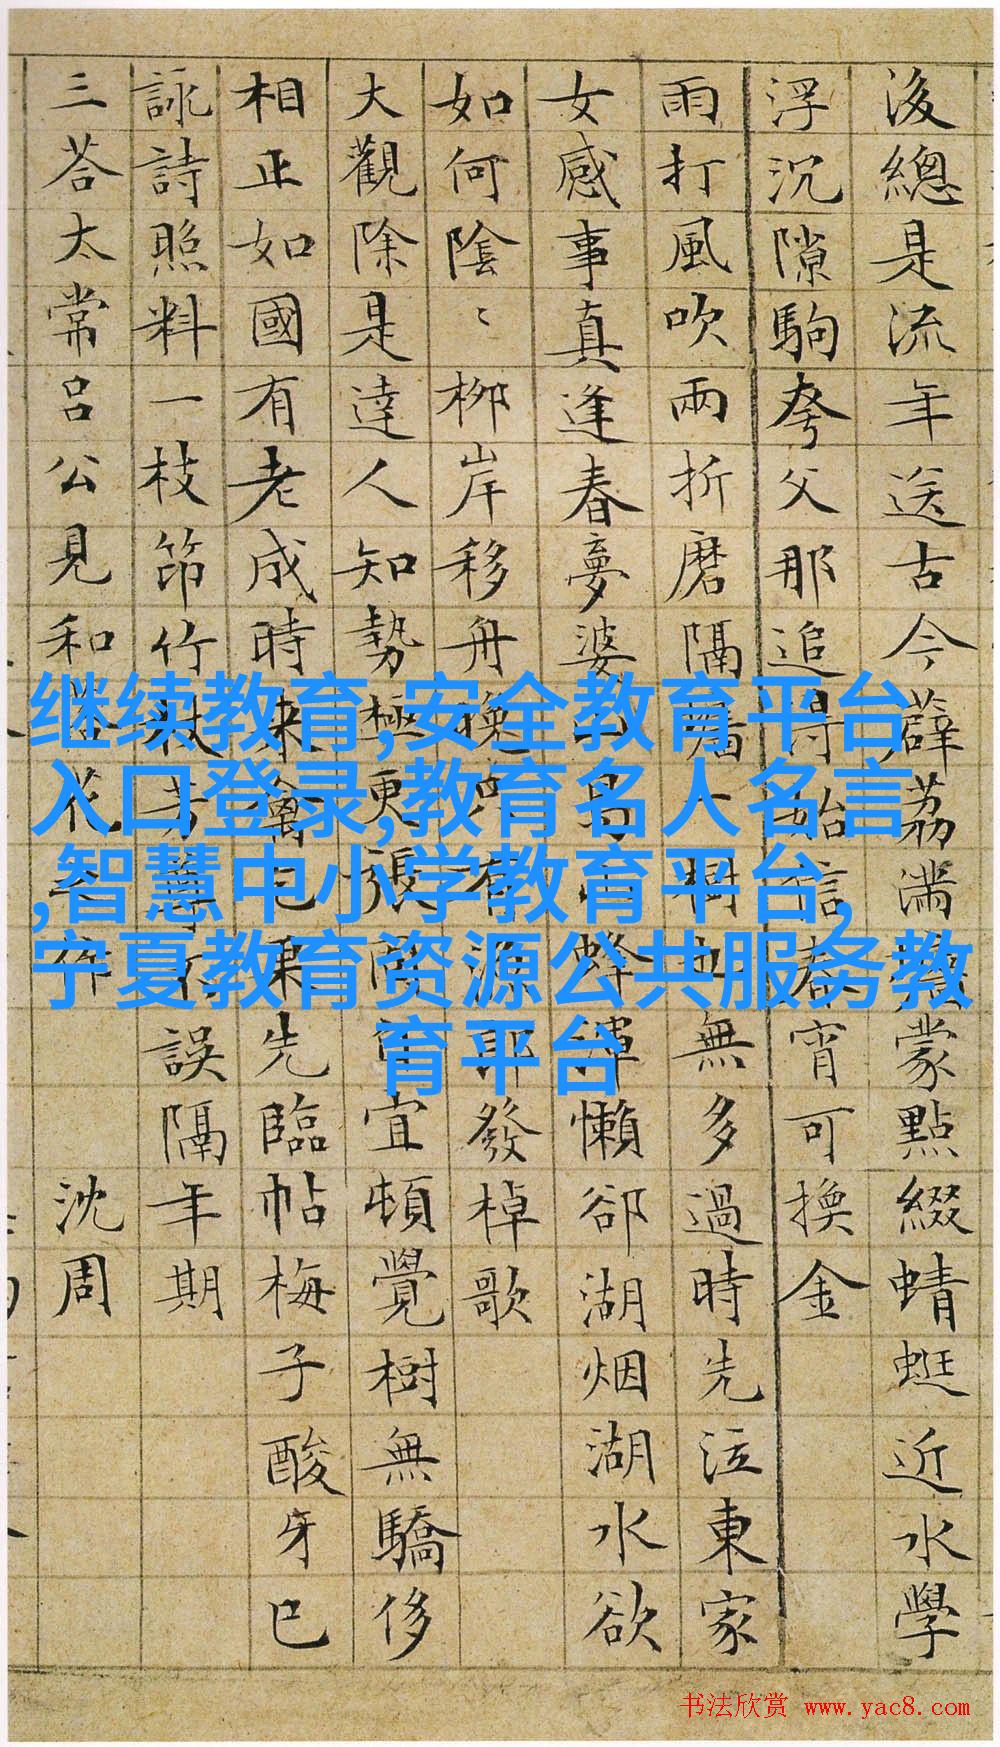 後總是流年送古今薜荔滿蒙點綴蜻蜓近水學
浮沉隙駒夸父那追得始信春宵可換金
雨打風吹兩折磨隔牆大樹也無多過時先泣東家
女感事真逢春夢婆蜂渾懶卻湖烟湖水欲
如何陰〻柳岸移舟換有漁郎發棹歌
大觀除是達人知勢極更張宜頓覺樹無驕侈
相正如國有老成時來禽已棄先臨帖梅子酸牙已
詠詩照料一枝笻竹杖誤隔年期
三荅太常吕公見和花作 沈周
继续教育,安全教育平台
入口登录,教育名人名言
,智慧中小学教育平台,
宁夏教育资源公共服务教
育平台
书法欣赏 www.yac8.com